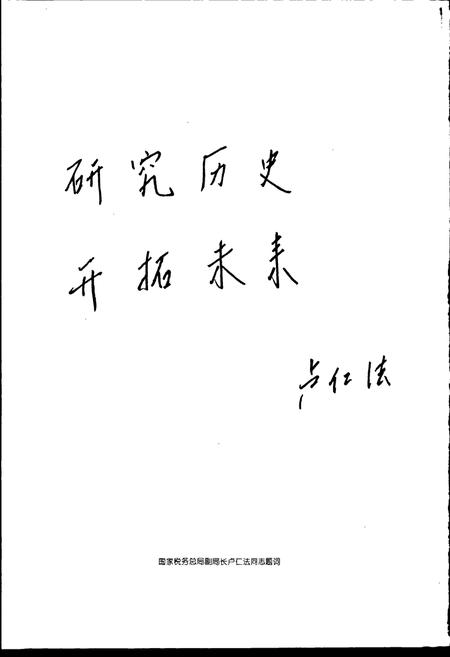 研究历史
开拓未来
卢仁法
国家税务总局副局长卢仁法同志题词